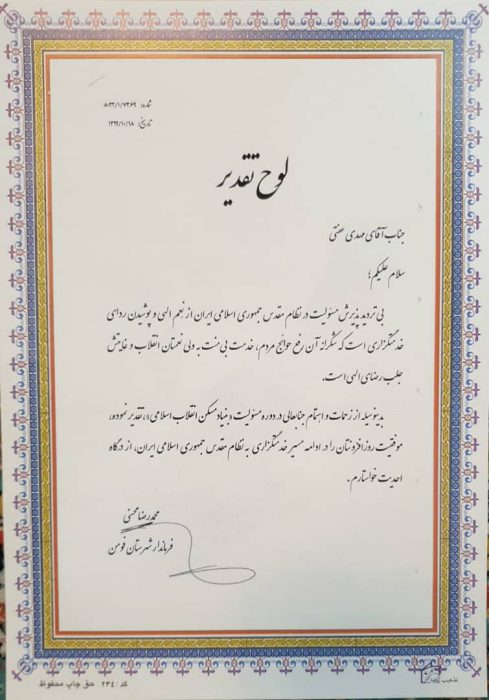 شماره: ۸۰۲۲/۱/۷۳۶۹
تاریخ: ۱۳۹۹/۱۰/۱۸
لوح تقدیر
جناب آقای مهدی عفتی
سلام علیکم؛
بی تردید پذیرش مسئولیت در نظام مقدس جمهوری اسلامی ایران از نعم الهی و پوشیدن ردای
خدمتگزاری است که شکرانه آن رفع حوائج مردم، خدمت بی منت به ولی نعمتان انقلاب و غایتش
جلب رضای الهی است.
بدینوسیله از زحمات و اهتمام جنابعالی در دوره مسئولیت «بنیاد مسکن انقلاب اسلامی»، تقدیر نموده،
موفقیت روزافزونتان را در ادامه مسیر خدمتگزاری به نظام مقدس جمهوری اسلامی ایران، از درگاه
احدیت خواستارم.
محمدرضا محسنی
فرماندار شهرستان فومن
کد: ۲۳۴ حق چاپ محفوظ